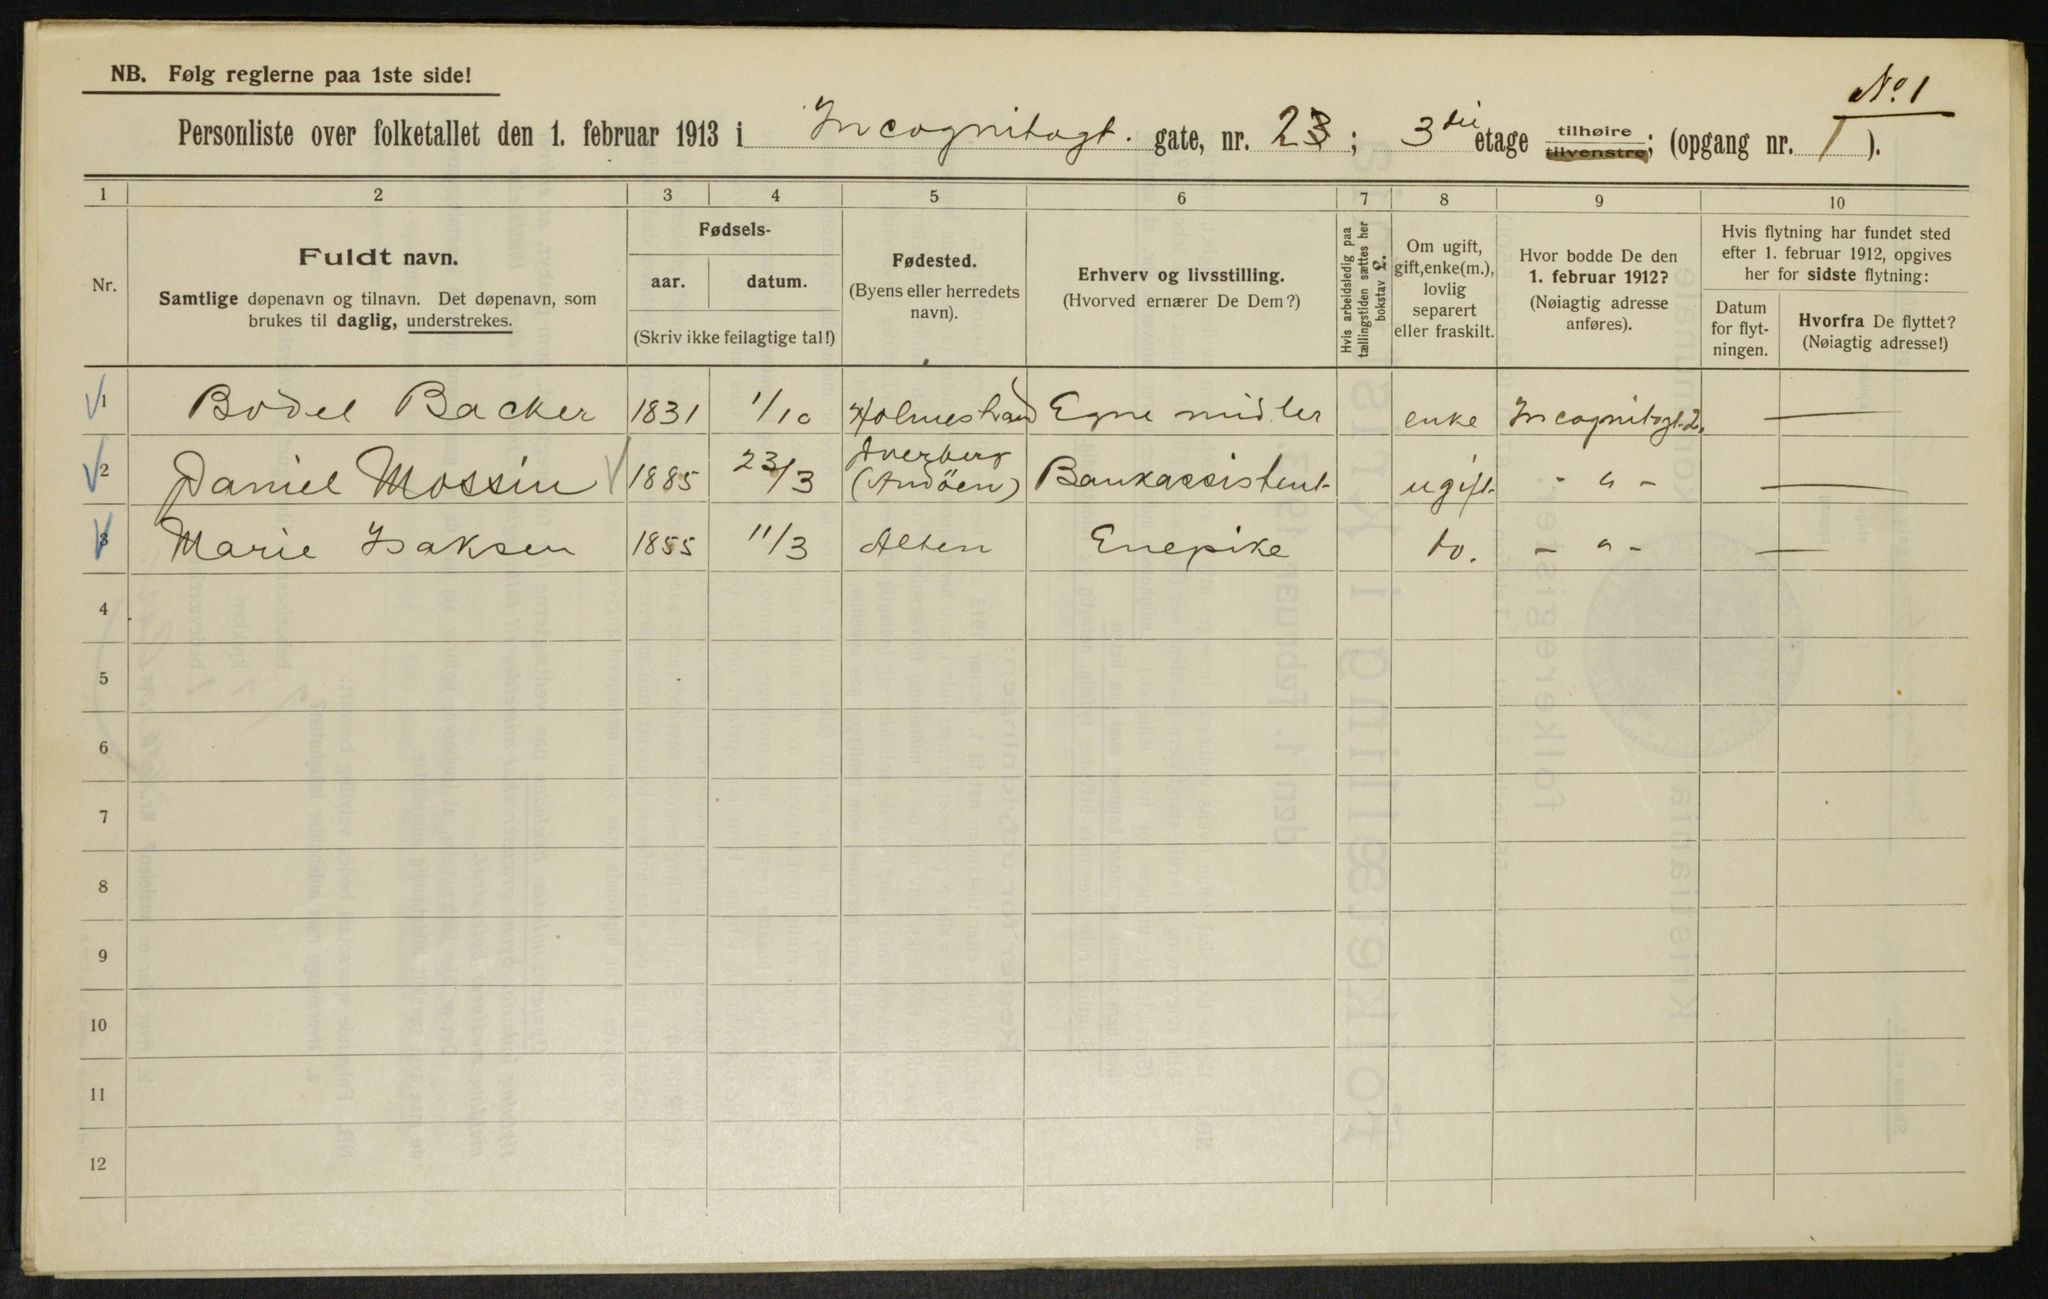 No. 1
NB. Følg reglerne paa 1ste side!
Personliste over folketallet den 1. februar 1913 i Incognitogt. gate, nr. 23; 3die etage tilhøire tilvenstre; (opgang nr. 1).
1 2 3 4 5 6 7 8 9 10
Nr.
Fuldt navn.
Samtlige døpenavn og tilnavn. Det døpenavn, som
brukes til daglig, understrekes.
Fødsels-
aar. datum.
(Skriv ikke feilagtige tal!)
Fødested.
(Byens eller herredets
navn).
Erhverv og livsstilling.
(Hvorved ernærer De Dem?)
Hvis arbeidsledig paa
tællingstiden sættes her
bokstav L.
Om ugift,
gift, enke(m.),
lovlig
separert
eller fraskilt.
Hvor bodde De den
1. februar 1912?
(Nøiagtig adresse
anføres).
Hvis flytning har fundet sted
efter 1. februar 1912, opgives
her for sidste flytning:
Datum
for flyt-
ningen.
Hvorfra De flyttet?
(Nøiagtig adresse!)
1 Bodel Backer 1831 1/10 Holmestrand Egne midler enke Incognitogt. 2. —
2 Daniel Mossin 1885 23/3 Dverberg (Andöen) Bankassistent ugift - " - —
3 Marie Isaksen 1855 11/3 Alten Enepike do. - " - —
4
5
6
7
8
9
10
11
12